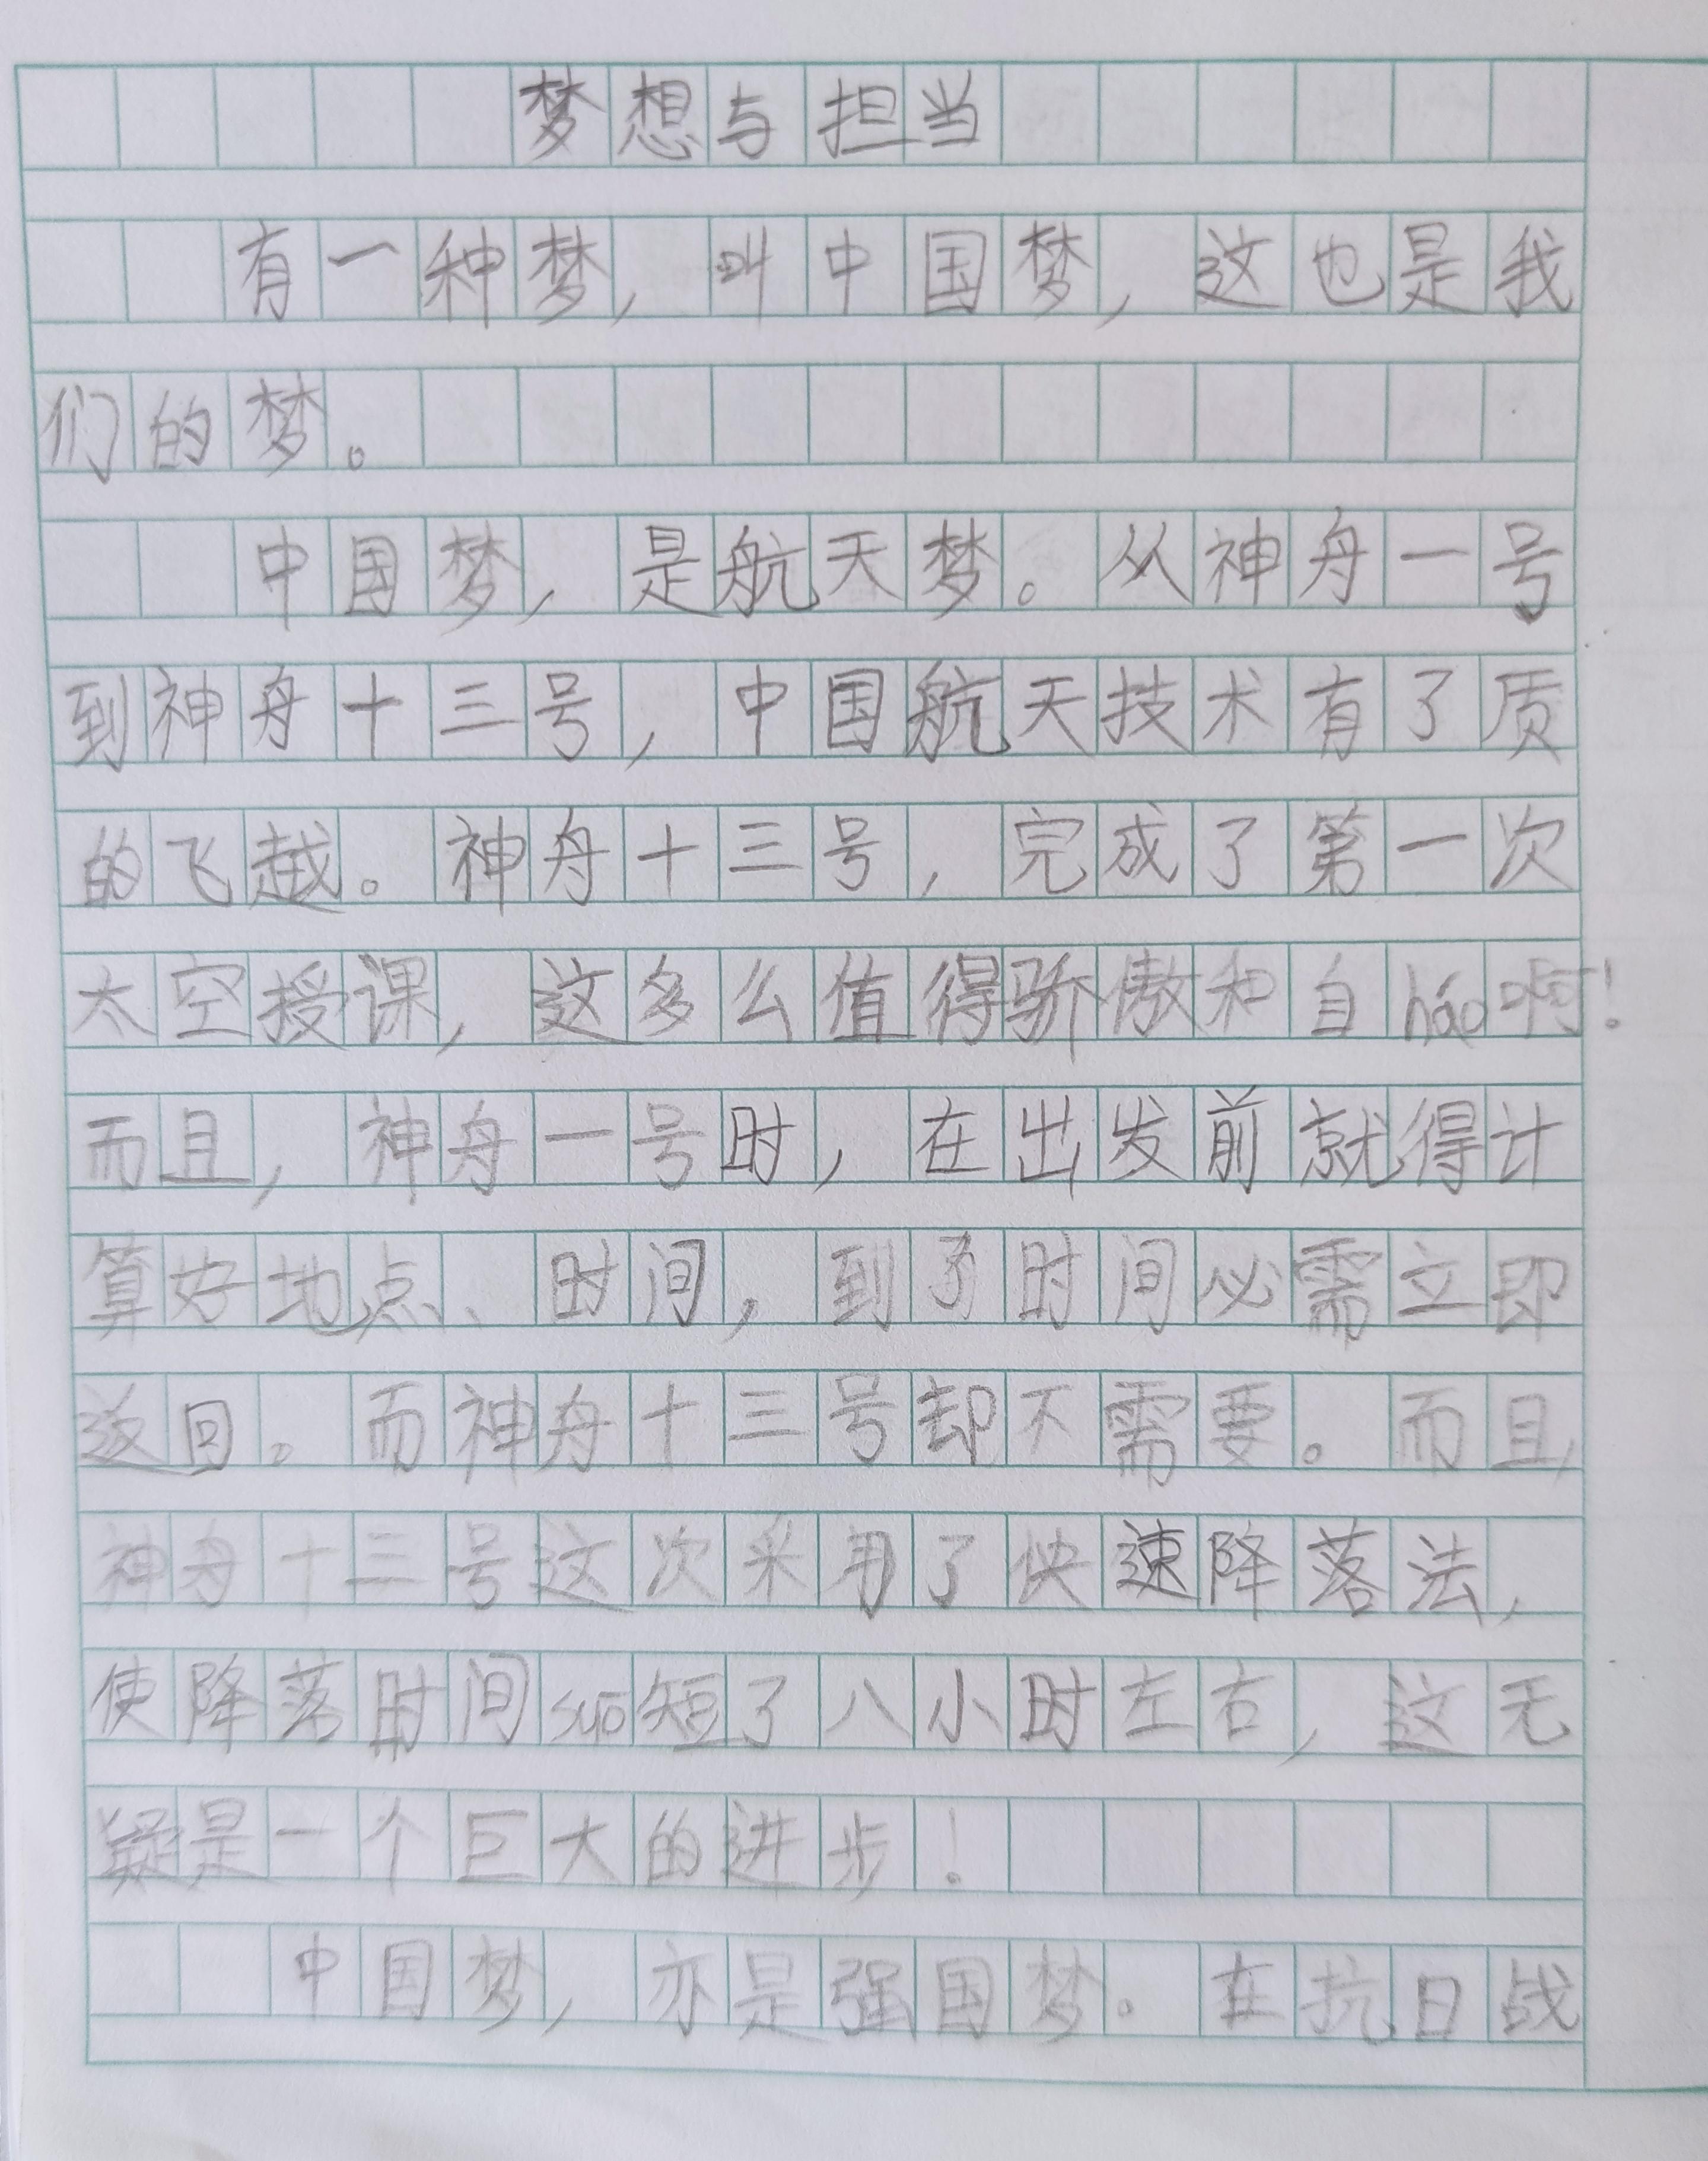 梦想与担当
有一种梦，叫中国梦，这也是我
们的梦。
中国梦，是航天梦。从神舟一号
到神舟十三号，中国航天技术有了质
的飞越。神舟十三号，完成了第一次
太空授课，这多么值得骄傲和自háo啊！
而且，神舟一号时，在出发前就得计
算好地点、时间，到了时间必需立即
返回。而神舟十三号却不需要。而且，
神舟十三号这次采用了快速降落法，
使降落时间suō短了八小时左右，这无
疑是一个巨大的进步！
中国梦，亦是强国梦。在抗日战